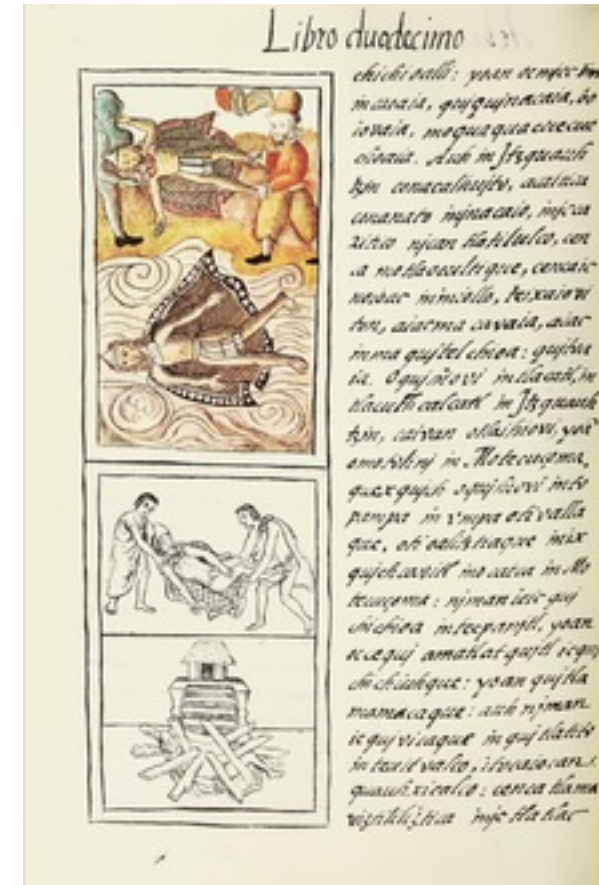 Libro duodecimo
chichi oalli: yoan oc miec
in caoaia, quiquinacaia,
iovaia, moquaqua cuecue
oloaia. Auh in Itzquauh
tzin conacalhuijto, acaltica
conanato injnacaio, injc ca
xitico njcan tlatilulco, cen
ca motlaocultique, cencaic
nooac ininiollo, teixaiovi
ton, aiac ma cavaia, aiac
inma quitelchioa: quitva
ia. Oquimovi in tlacatl, in
tlacuchcalcatl in Itzquauh
tzin, caivan otlaihiovi, yoā
omotolinj in Motecuçoma,
quexquich oquihiovi in to
pampa in vmpa oti valla
que, oti oalitztiaque in ix
quich cavitl in o catca in Mo
tecuçoma: njman ieic qui
chichioa in tecpanjtl, yoan
oc cequj amatlatquitl ic quj
chi chiuhque: yoan quitla
momacaque: auh njman
ic qui vicaque in quitlatito
in teuitvalco, itocaiocan.
quauhxicalco: cenca tlama
viztililiztica injc tlatlac